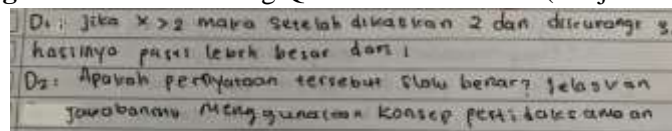 D1: Jika x > 2 maka setelah dikalikan 2 dan dikurangi 3,
hasilnya pasti lebih besar dari 1
D2: Apakah pernyataan tersebut slalu benar? Jelaskan
jawabanmu menggunakan konsep pertidaksamaan